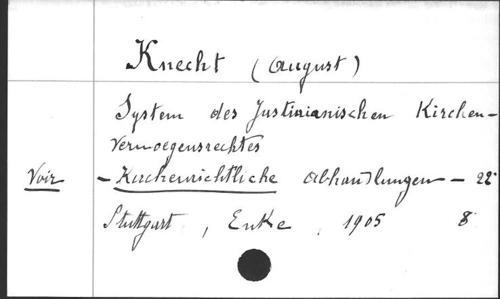 Knecht (August)
System des Justinianischen Kirchen-
vermoegensrechtes
Voir - Kirchenrichtliche Abhandlungen - 22
Stuttgart, Enke, 1905 8